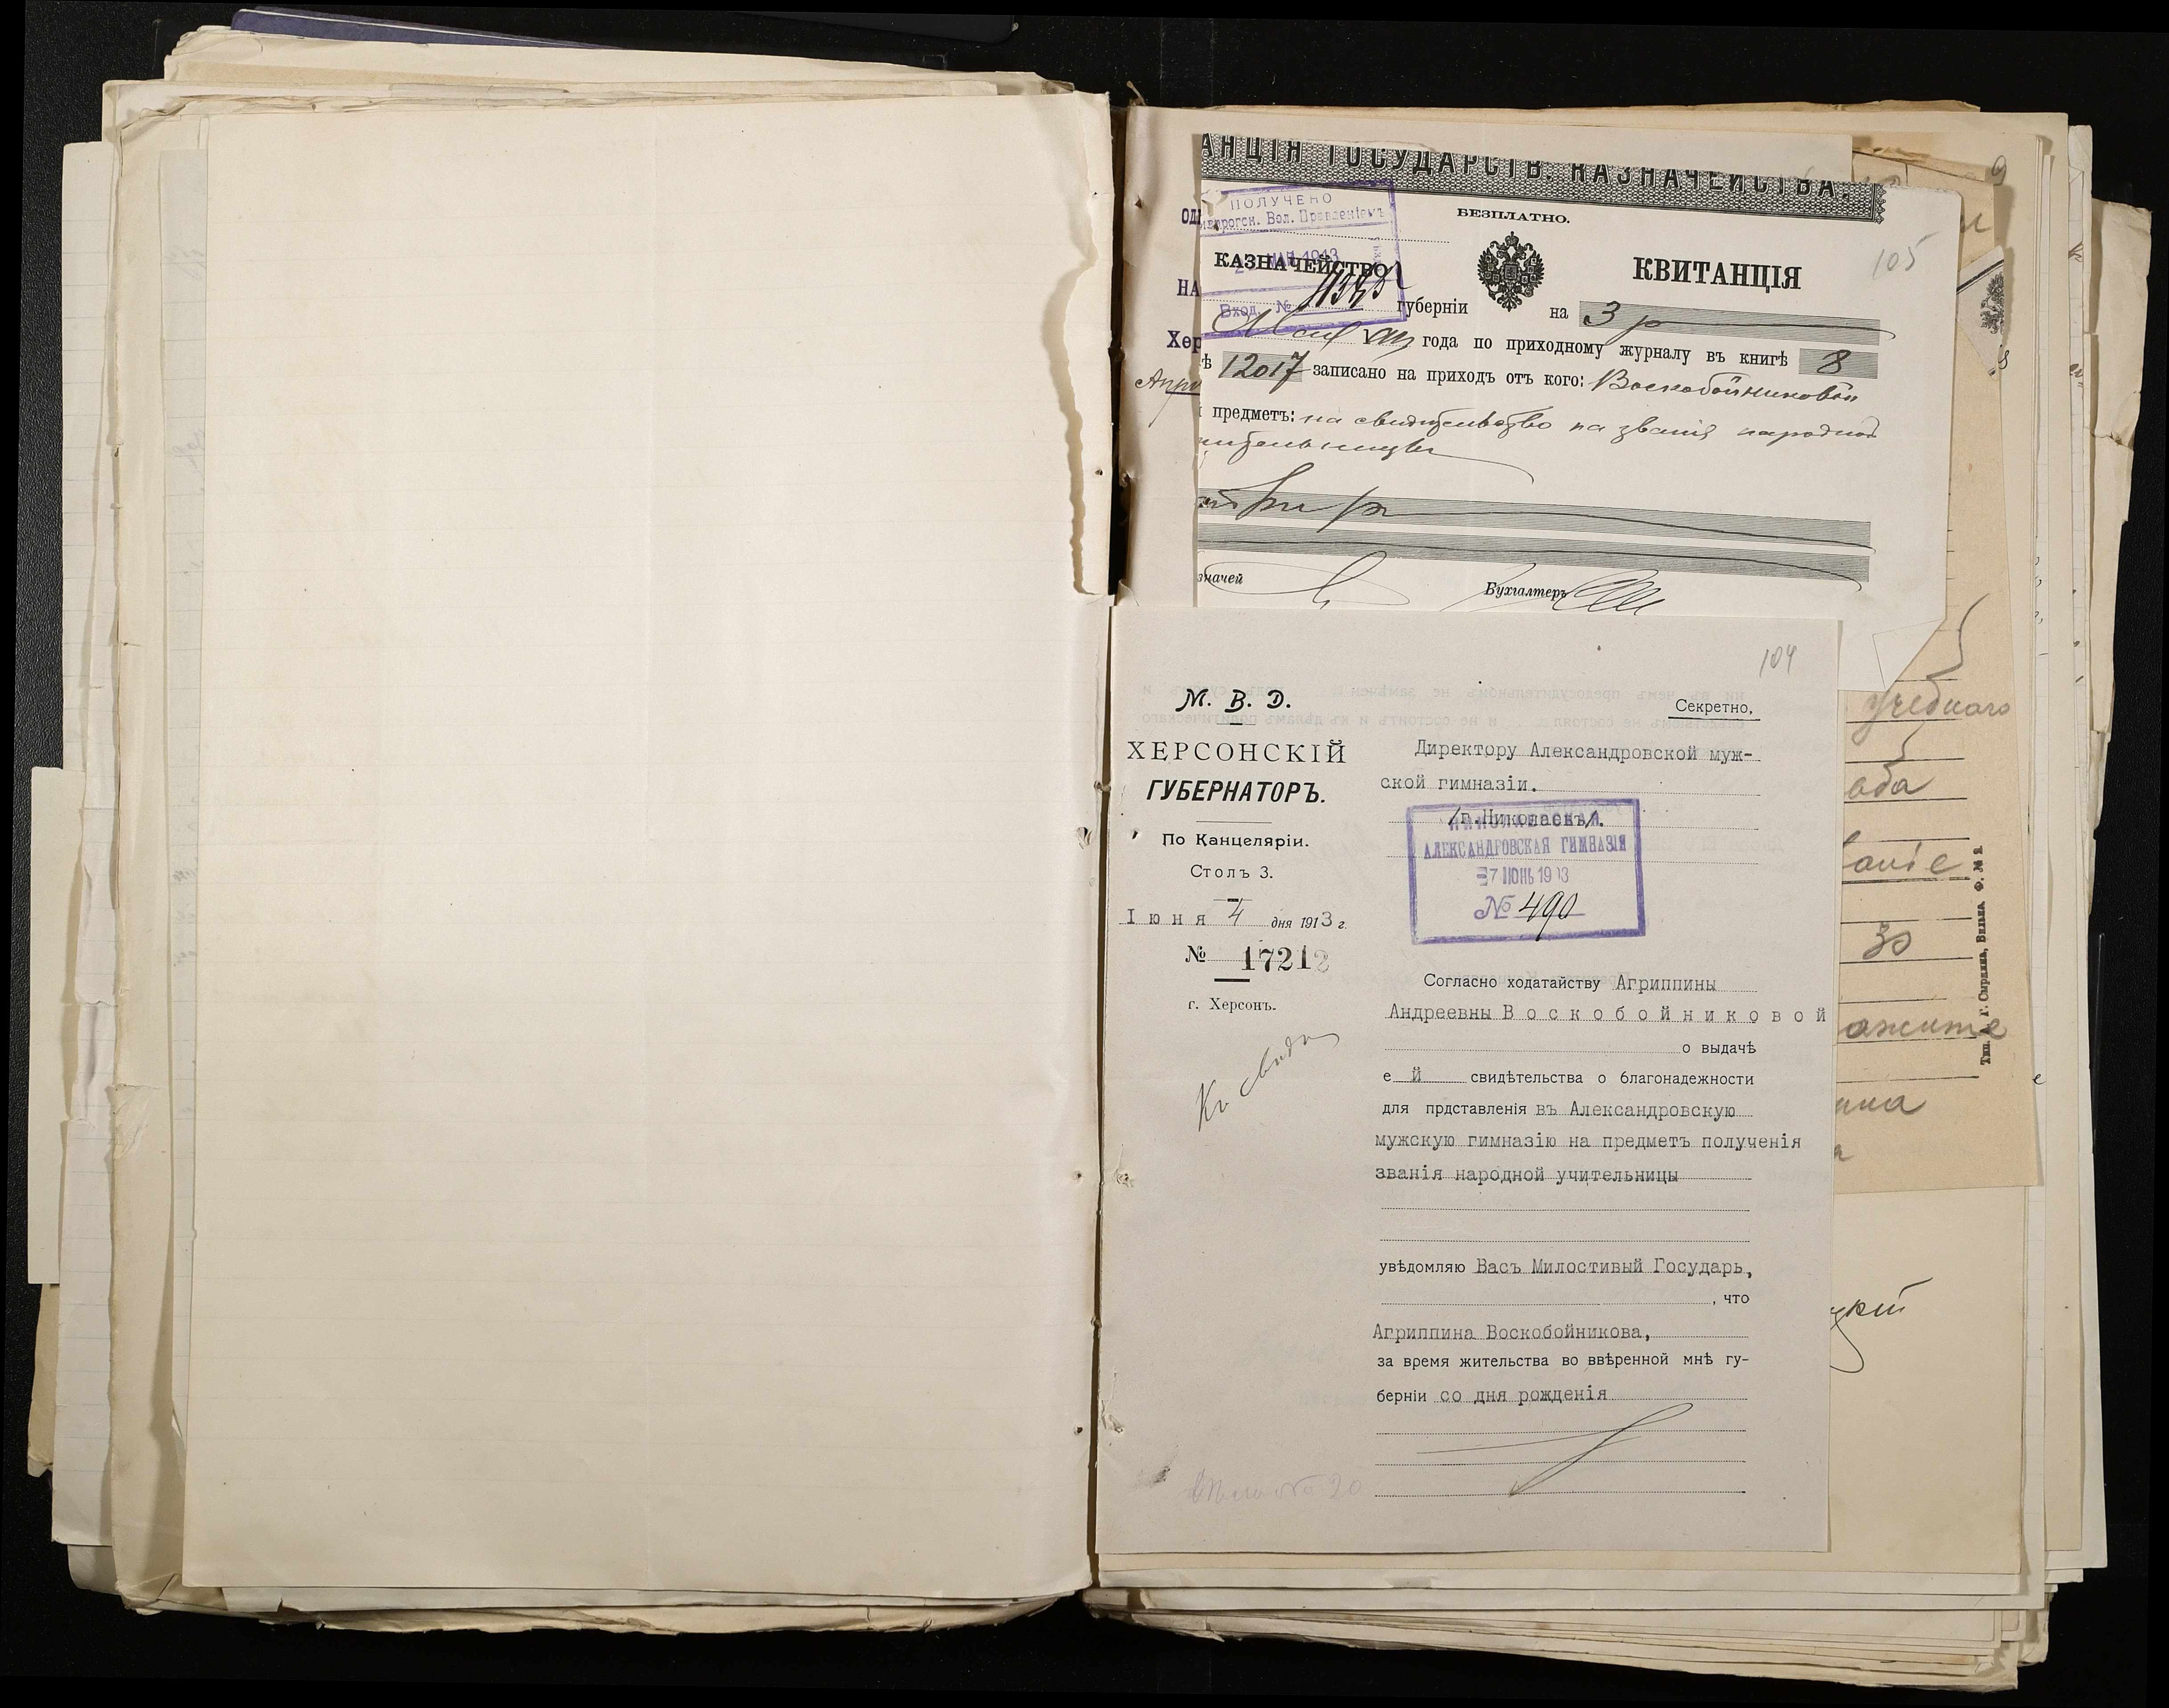 АНЦІЯ ГОСУДАРСТВ. НАЗНАЧЕЙСТВА.
БЕЗПЛАТНО.
ПОЛУЧЕНО
Вол. Правленіемъ
1913
Вход. №
105
КАЗНАЧЕЙСТВО
КВИТАНЦІЯ
губерніи
на 3 р
НА
Хер
года по приходному журналу въ книгѣ 8
ѣ 12017 записано на приходъ отъ кого: Воскобойниковой
предметъ: на свидѣтельство на званія народной
учительницы
три р
значей
Бухгалтеръ
104
М. В. Д.
Секретно.
ХЕРСОНСКІЙ
ГУБЕРНАТОРЪ.
По Канцеляріи.
Столъ 3.
Іюня 4 дня 1913 г.
№ 17212
г. Херсонъ.
Къ свид
Директору Александровской муж-
ской гимназіи.
/г.Николаевъ/.
НИКОЛАЕВСКАЯ
АЛЕКСАНДРОВСКАЯ ГИМНАЗІЯ
7 ІЮНЬ 1913
№ 490
Согласно ходатайству Агриппины
Андреевны Воскобойниковой
о выдачѣ
ей свидѣтельства о благонадежности
для прдставленія въ Александровскую
мужскую гимназію на предметъ полученія
званія народной учительницы
увѣдомляю Васъ Милостивый Государь,
, что
Агриппина Воскобойникова,
за время жительства во ввѣренной мнѣ гу-
берніи со дня рожденія
учебнаго
30
Тип. А. Г. Сыркина, Вильна. Ф. № 2.